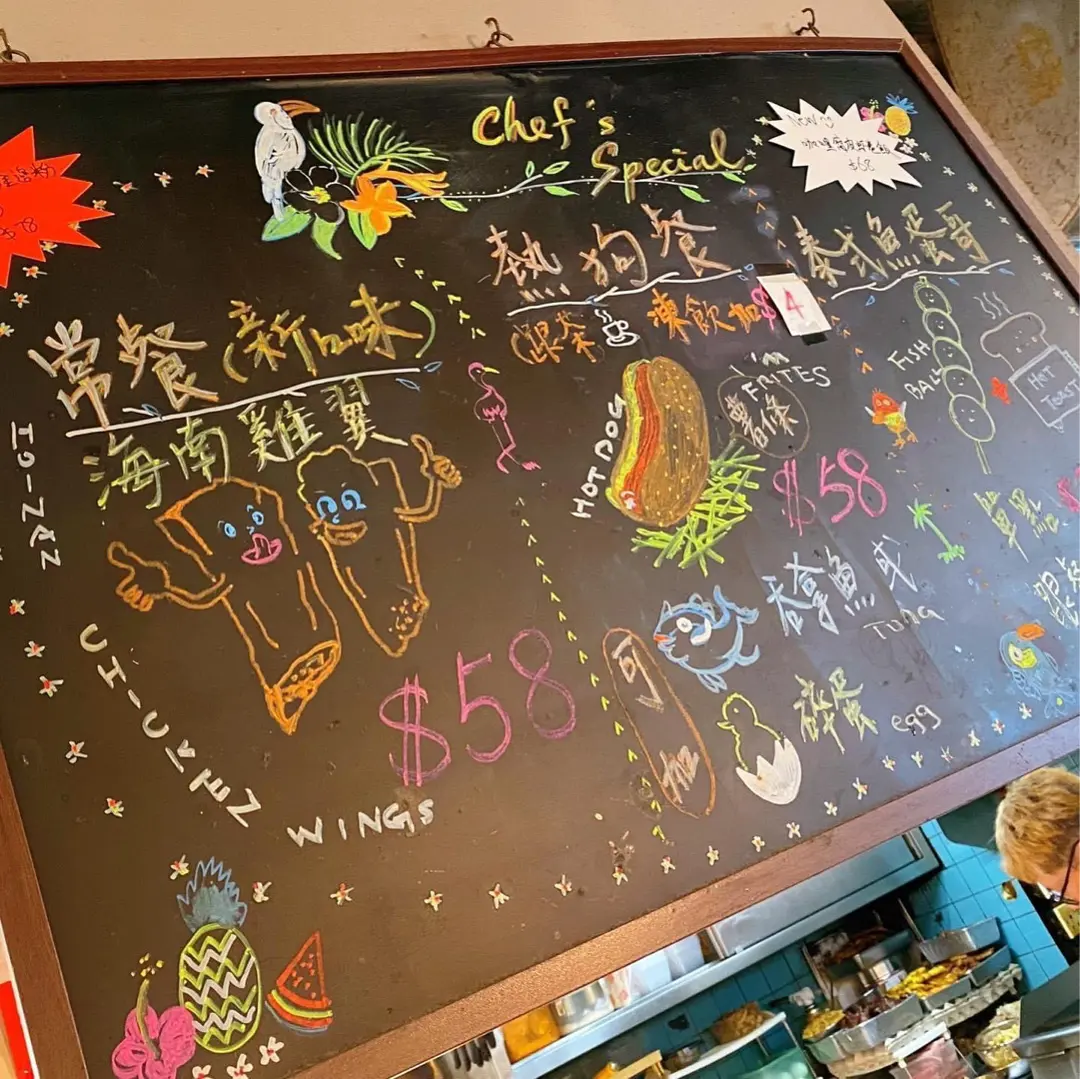 Chef's
Special
New
$68
$78
常餐(新口味)
海南雞翼
HAINAN
CHICKEN
WINGS
$58
熱狗餐
(跟茶
凍飲加$4
HOT DOG
FRITES
薯條
$58
吞拿魚或
Tuna
可加
碎蛋
egg
泰式魚蛋哥
FISH
BALL
HOT
TOAST
單點
跟餐